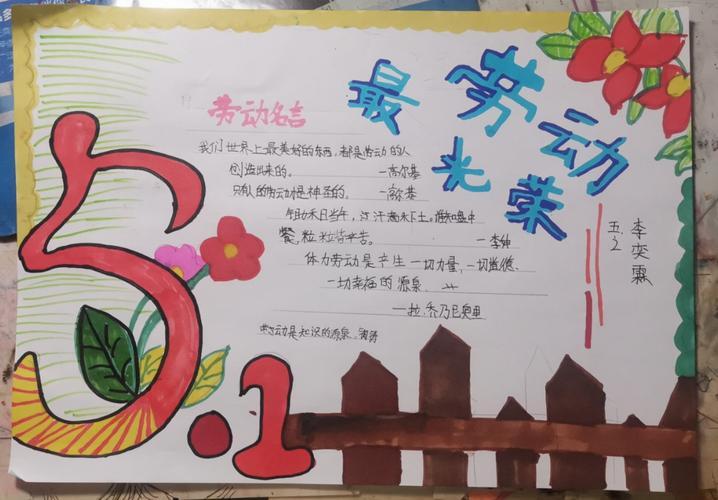 最劳动
光荣
五.2
李奕霖
劳动名言
我们世界上最美好的东西,都是劳动的人
创造出来的。 —高尔基
只人的劳动是神圣的。 —高尔基
锄禾日当午,汗滴禾下土。谁知盘中
餐,粒粒皆辛苦。 —李绅
体力劳动是产生一切力量,一切道德、
一切幸福的源泉。
——拉·乔乃尼奥里
劳动是知识的源泉。
5.1